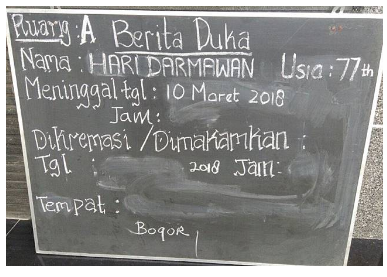 Ruang : A Berita Duka
Nama : HARI DARMAWAN Usia : 77th
Meninggal tgl : 10 Maret 2018
Jam :
Dikremasi / Dimakamkan :
Tgl : 2018 Jam :
Tempat :
Bogor